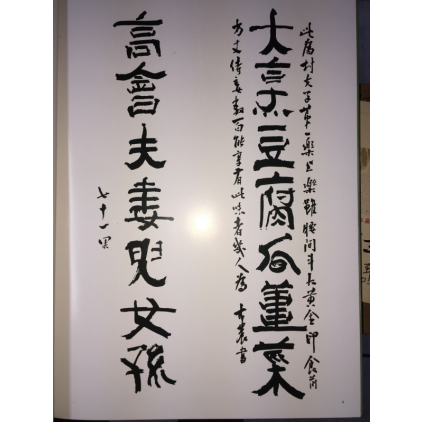 大亨豆腐瓜薑菜
此為村夫子第一樂上樂雖腰間斗大黃金印食前
方丈侍妾數百能享有此味者幾人為
農書
高會夫妻兒女孫
七十一